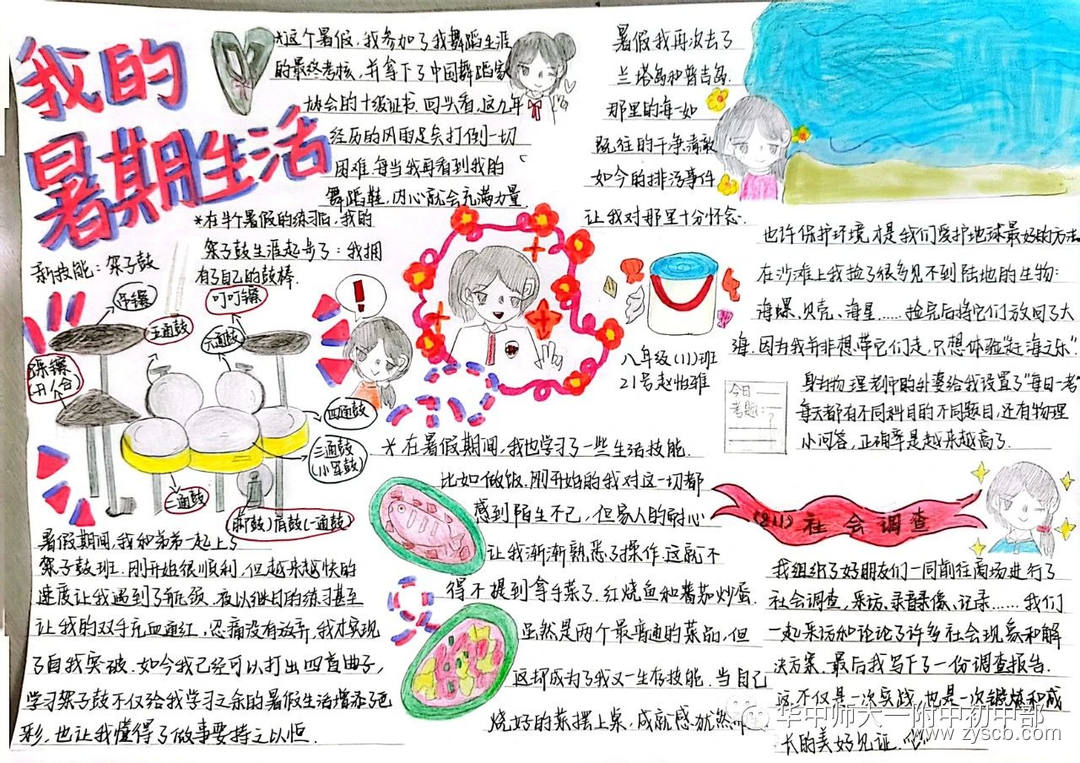 我的
暑期生活
*这个暑假，我参加了我舞蹈生涯
的最终考核，并拿下了中国舞蹈家
协会的十级证书.回头看，这几年
经历的风雨是
打倒一切
困难.每当我再看到我的
舞蹈鞋，内心就会充满力量.
*在半个暑假的练习后，我的
架子鼓生涯起步了：我拥
有了自己的鼓棒.
新技能：架子鼓
吊镲
叮叮镲
踩镲
(开/合)
四通鼓
三通鼓
(小军鼓)
二通鼓
暑假期间，我和弟弟一起上了
架子鼓班.刚开始很顺利，但越来越快的
速度让我遇到了瓶颈.夜以继日的练习甚至
让我的双手充血通红，忍痛没有放弃，我才实现
了自我突破.如今我已经可以打出四首曲子，
学习架子鼓不仅给我学习之余的暑假生活增添了色
彩，也让我懂得了做事要持之以恒.
暑假我再次去了
兰塔岛和普吉岛.
那里的海一如
既往的干净清澈
如今的排污事件
让我对那里十分怀念.
也许保护环境才是我们爱护地球最好的方法.
在沙滩上我捡了很多见不到陆地的生物：
海螺、贝壳、海星……捡完后将它们放回了大
海.因为我并非想带它们走，只想体验“赶海之乐”.
八年级(11)班
21号
今日
考题：
身为物理老师的外婆给我设置了“每日一考”
每天都有不同科目的不同题目，还有物理
小问答，正确率是越来越高了.
*在暑假期间，我也学习了一些生活技能.
比如做饭.刚开始的我对这一切都
感到陌生不已，但家人的耐心
让我渐渐熟悉了操作.这就不
得不提到拿手菜了.红烧鱼和番茄炒蛋.
虽然是两个最普通的菜品，但
这却成为了我又一生存技能.当自己
烧好的菜摆上桌，成就感犹然
社会调查
我组织了好朋友们一同前往商场进行了
社会调查，采访、录音录像、记录……我们
一起采访加讨论了许多社会现象和解
决方案.最后我写下了一份调查报告.
这不仅是一次实战，也是一次锻炼和成
长的美好见证.
华中师大一附中初中部
www.zyscb.com